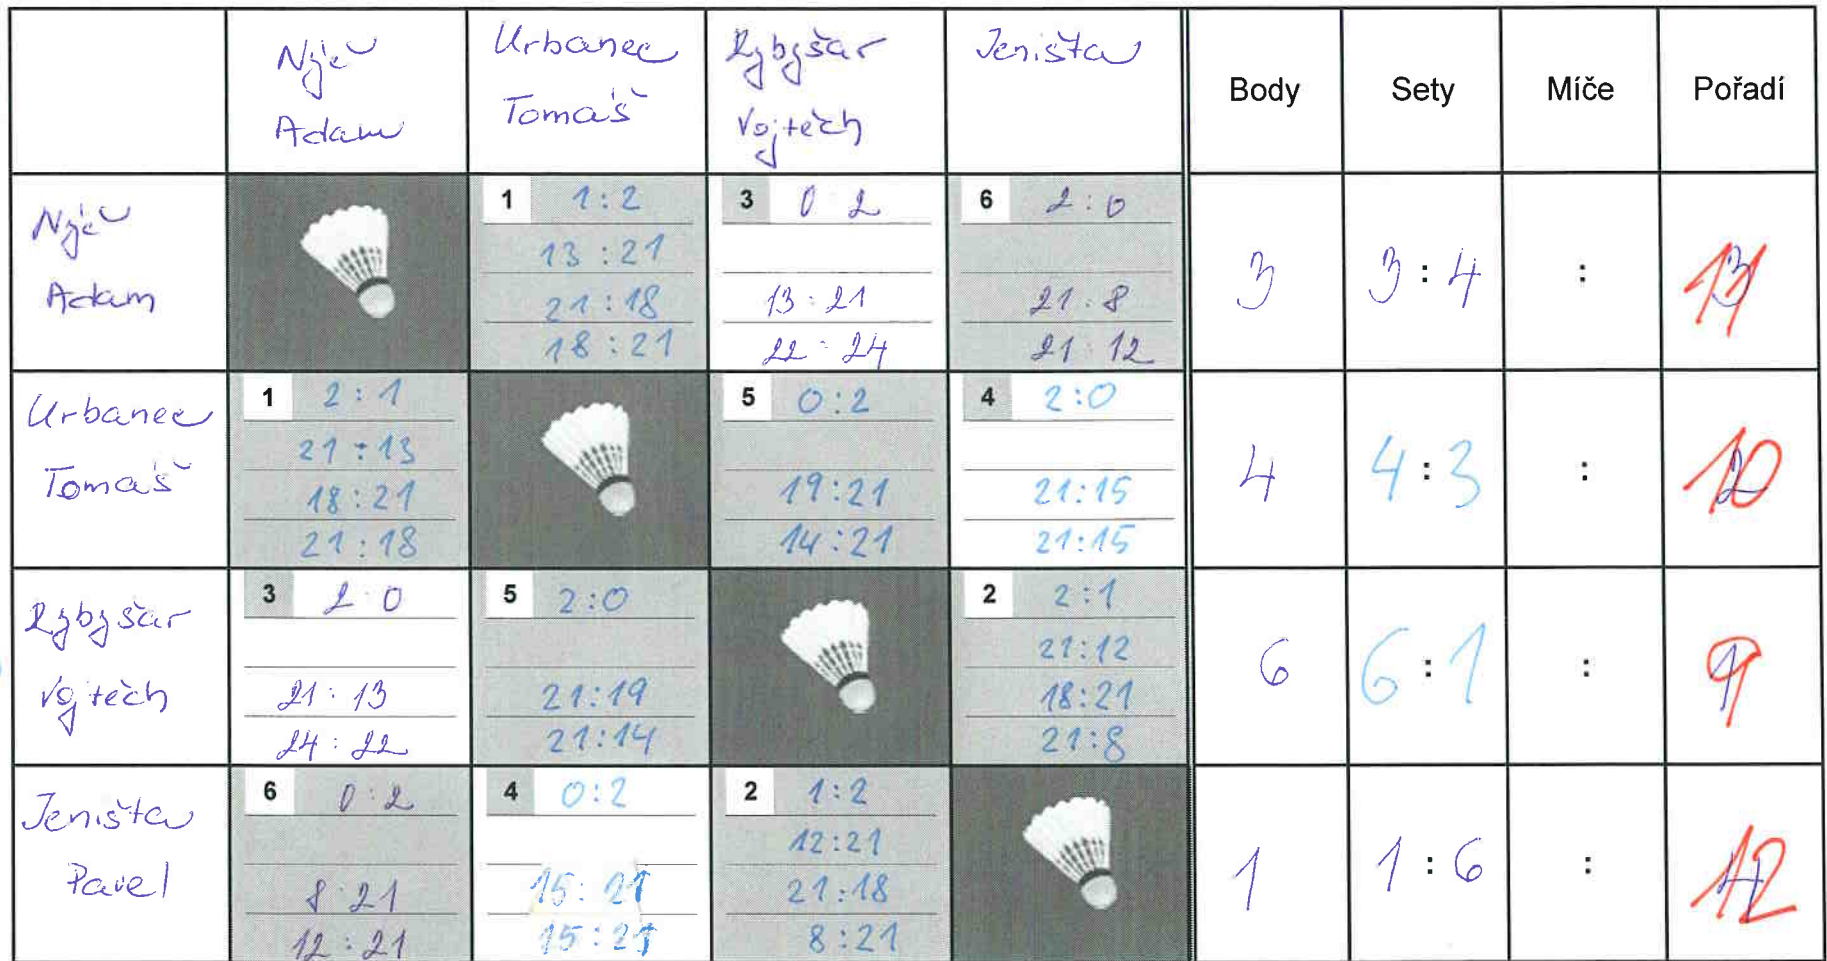 Nýč Adam
Urbanec Tomáš
Rybyšar Vojtěch
Jeništa
Body
Sety
Míče
Pořadí
Nýč Adam
1 1:2
13:21
21:18
18:21
3 0 2
13:21
22:24
6 2:0
21:8
21:12
3
3:4
:
11
Urbanec Tomáš
1 2:1
21:13
18:21
21:18
5 0:2
19:21
14:21
4 2:0
21:15
21:15
4
4:3
:
10
Rybyšar Vojtěch
3 2:0
21:13
24:22
5 2:0
21:19
21:14
2 2:1
21:12
18:21
21:8
6
6:1
:
9
Jeništa Pavel
6 0:2
8:21
12:21
4 0:2
15:21
15:21
2 1:2
12:21
21:18
8:21
1
1:6
:
12